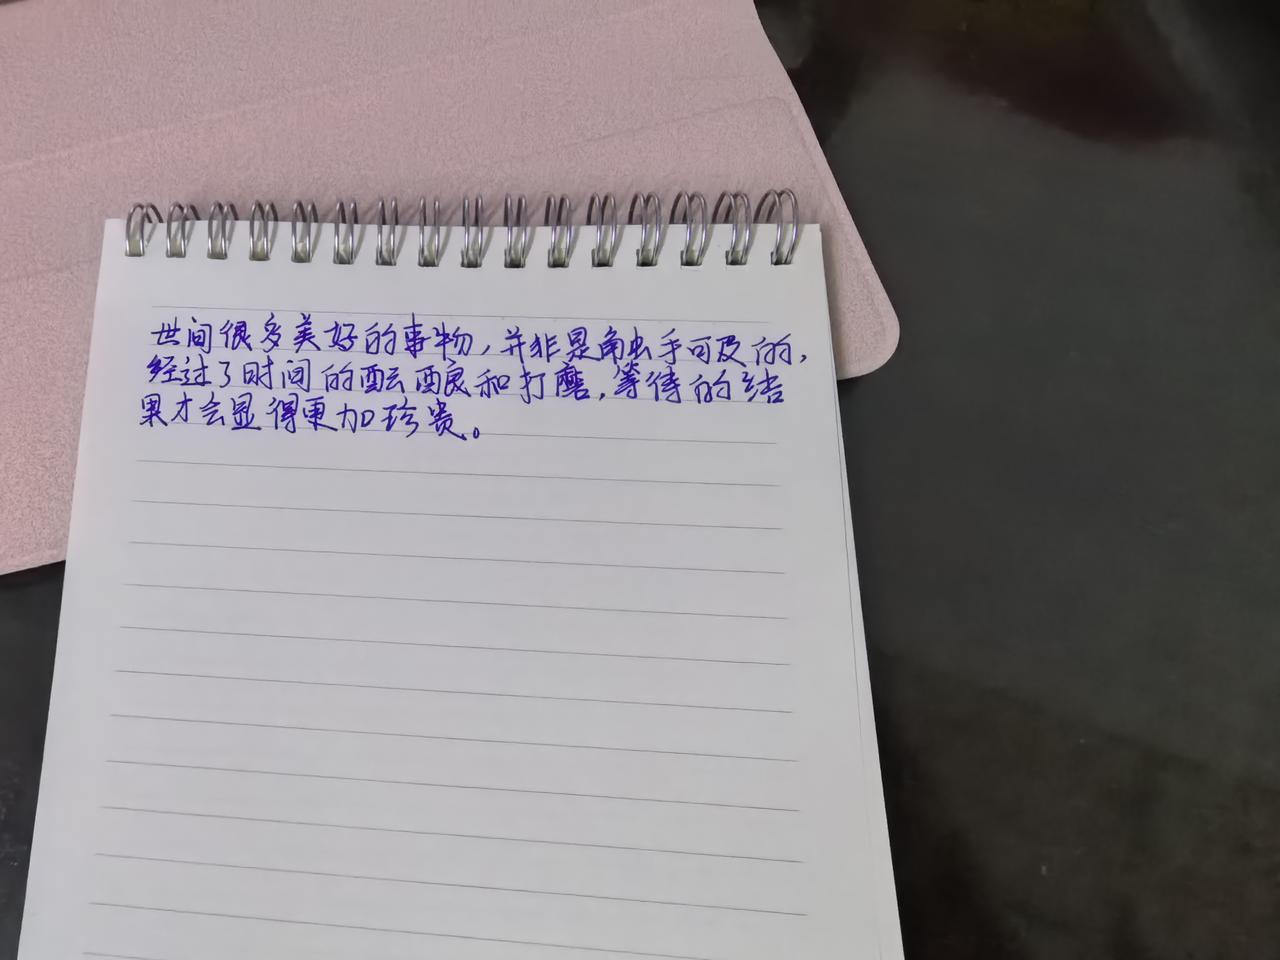 世间很多美好的事物，并非是触手可及的，
经过了时间的酝酿和打磨，等待的结
果才会显得更加珍贵。